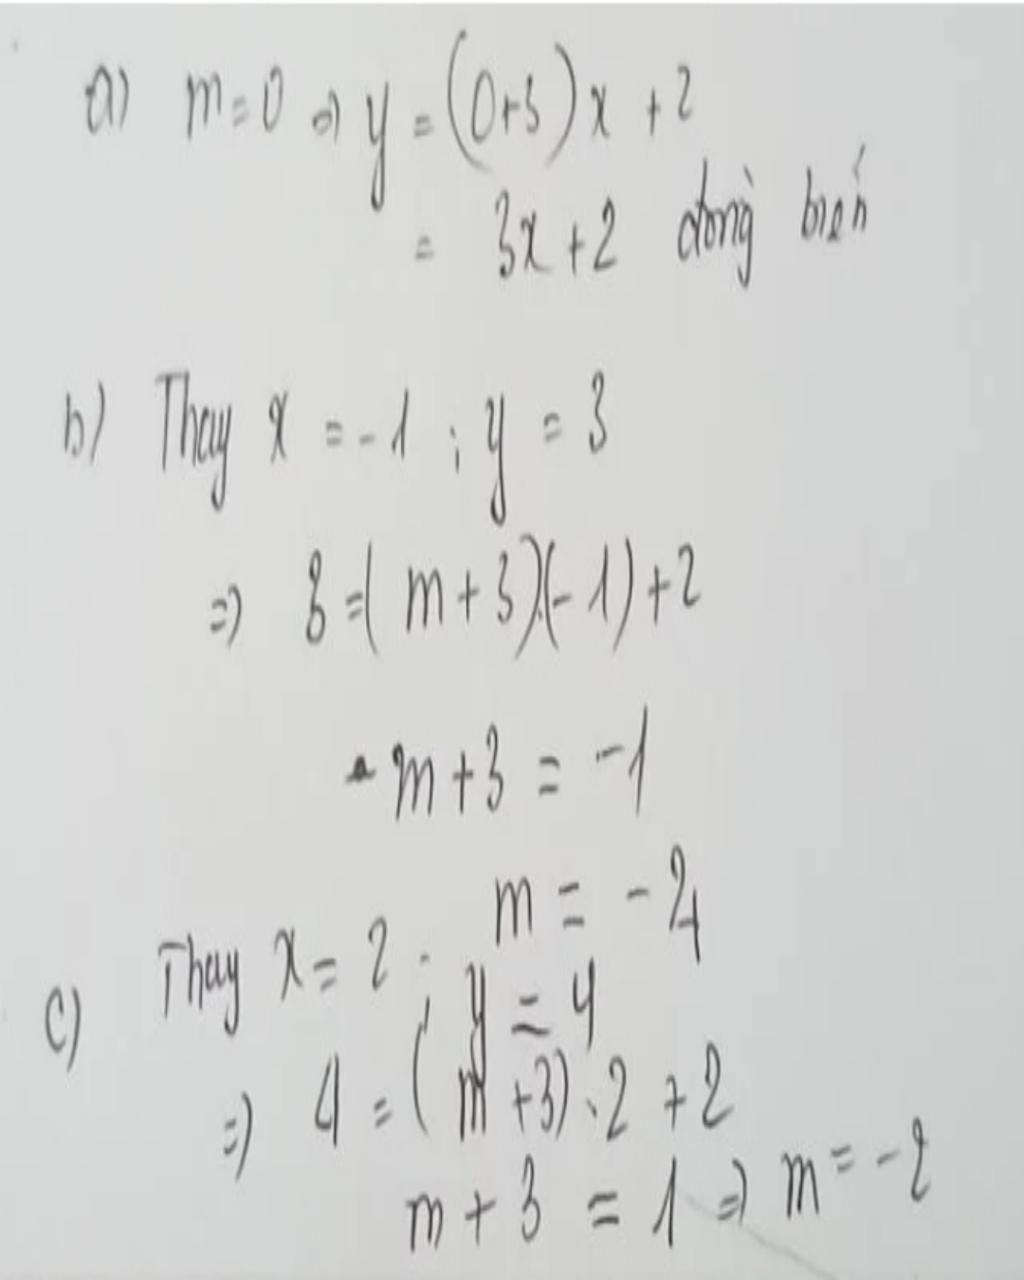 a) m=0 => y = (0+3)x + 2
= 3x+2 đồng biến
b) Thay x = -1 ; y = 3
=> 3 = (m+3)(-1)+2
m+3 = -1
m = -4
c) Thay x = 2 ; y = 4
=> 4 = (m+3).2 + 2
m + 3 = 1 => m = -2